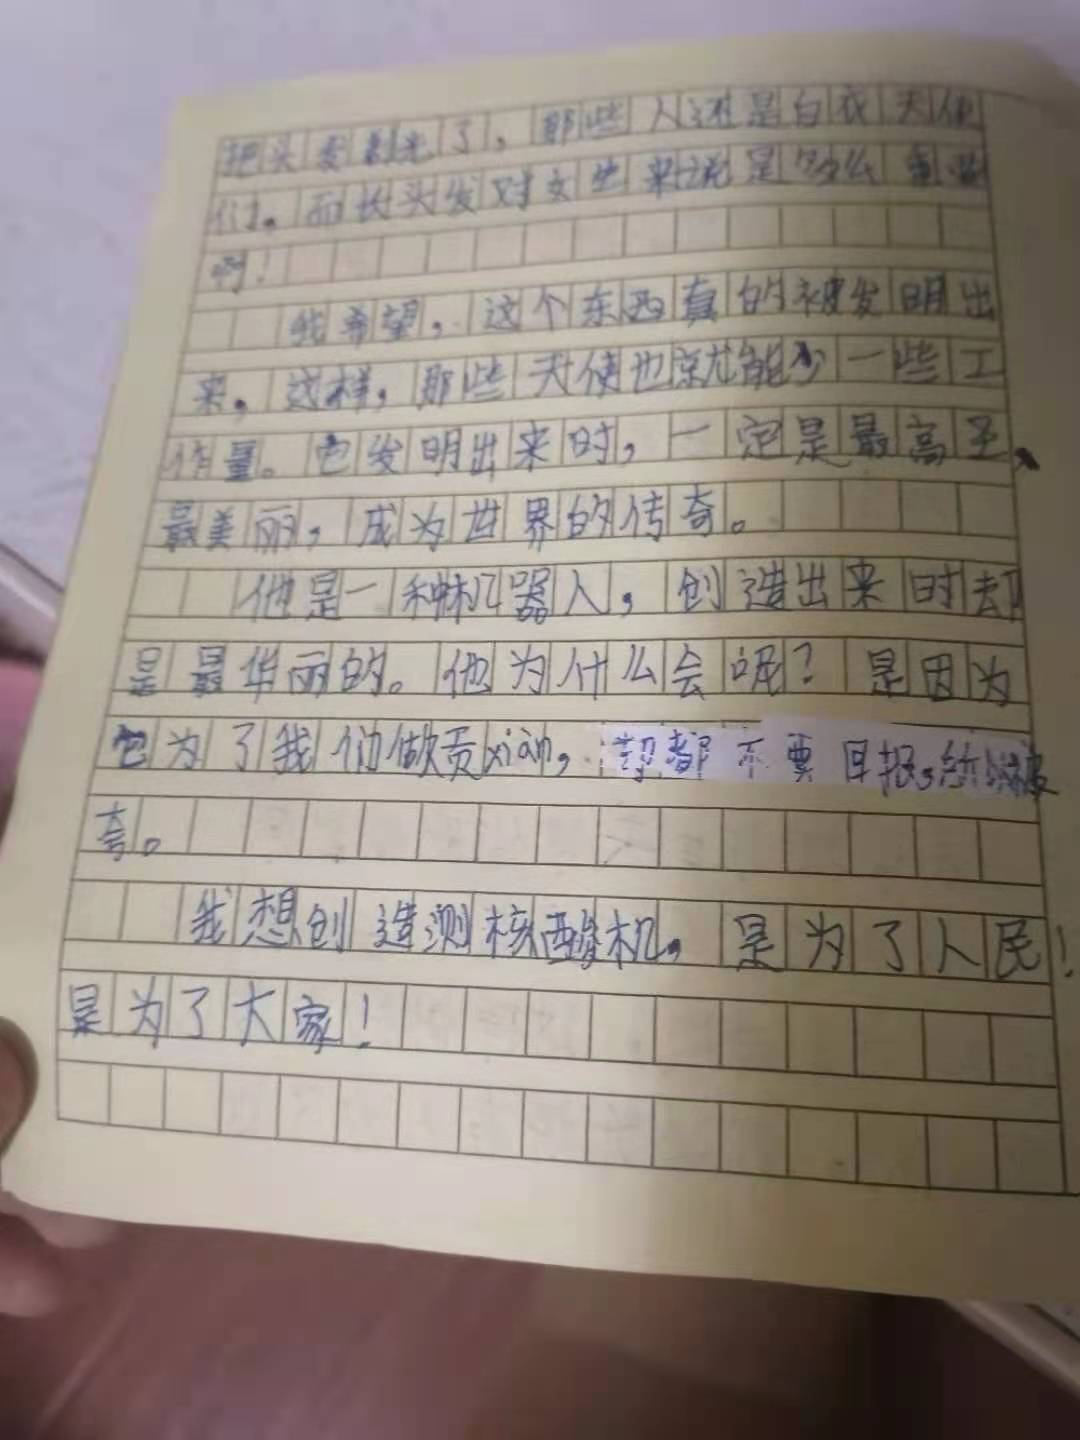 把头发剃光了，那些人还是白衣天使
们。而长头发对女生来说是多么重要
啊！
我希望，这个东西真的被发明出
来，这样，那些天使也就能少一些工
作量。它发明出来时，一定是最高圣、
最美丽，成为世界的传奇。
他是一种机器人，创造出来时却
是最华丽的。他为什么会呢？是因为
它为了我们做贡xiàn，都不要回报，
夸。
我想创造测核酸机，是为了人民！
是为了大家！